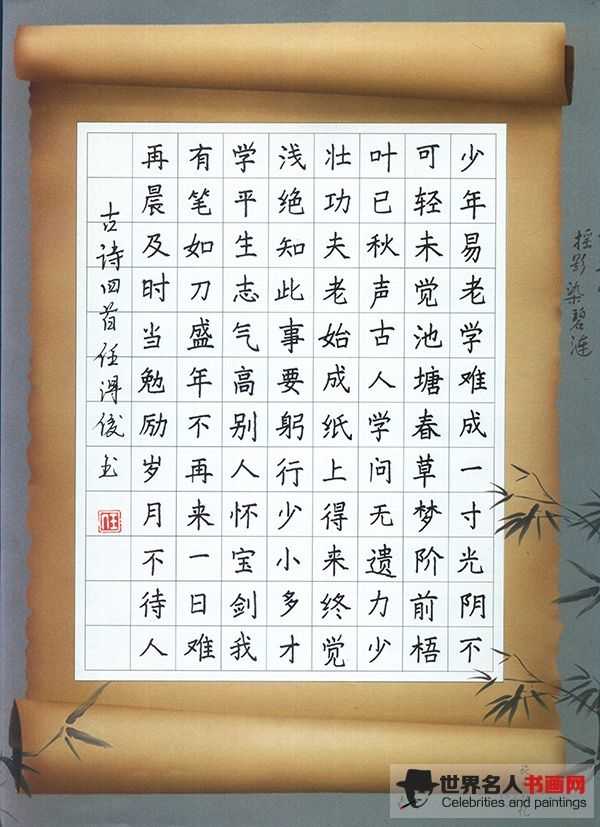 少年易老学难成一寸光阴不
可轻未觉池塘春草梦阶前梧
叶已秋声古人学问无遗力少
壮功夫老始成纸上得来终觉
浅绝知此事要躬行少小多才
学平生志气高别人怀宝剑我
有笔如刀盛年不再来一日难
再晨及时当勉励岁月不待人
古诗四首任得俊书
摇影染碧涟
世界名人书画网
Celebrities and paintings